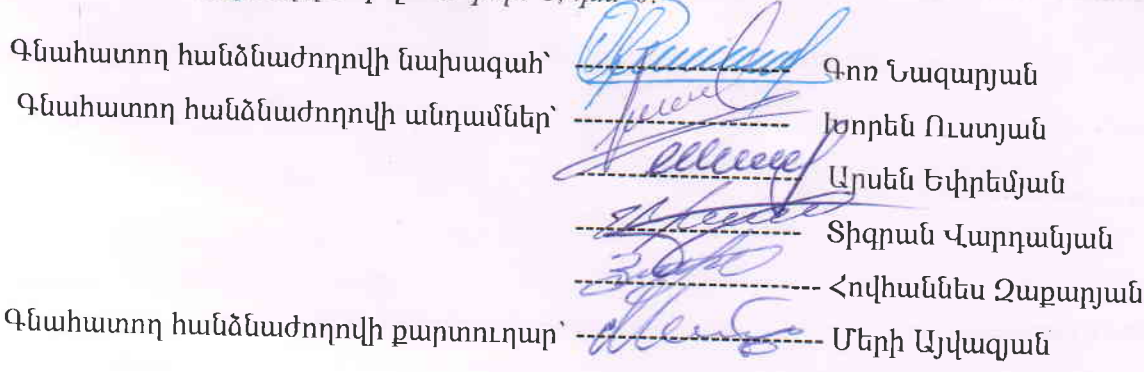 Գնահատող հանձնաժողովի նախագահ՝ -------------------- Գոռ Նազարյան
Գնահատող հանձնաժողովի անդամներ՝ -------------------- Խորեն Ուստյան
-------------------- Արսեն Եփրեմյան
-------------------- Տիգրան Վարդանյան
-------------------- Հովհաննես Զաքարյան
Գնահատող հանձնաժողովի քարտուղար՝ -------------------- Մերի Այվազյան